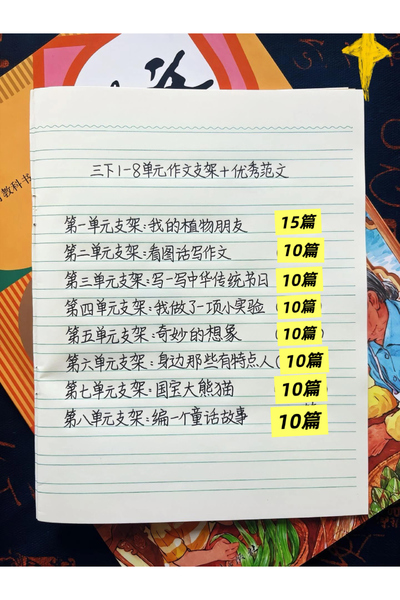 教科书
三下1-8单元作文支架+优秀范文
第一单元支架:我的植物朋友 15篇
第二单元支架:看图话写作文 10篇
第三单元支架:写一写中华传统书日 10篇
第四单元支架:我做了一项小实验 10篇
第五单元支架:奇妙的想象 10篇
第六单元支架:身边那些有特点人 10篇
第七单元支架:国宝大熊猫 10篇
第八单元支架:编一个童话故事 10篇